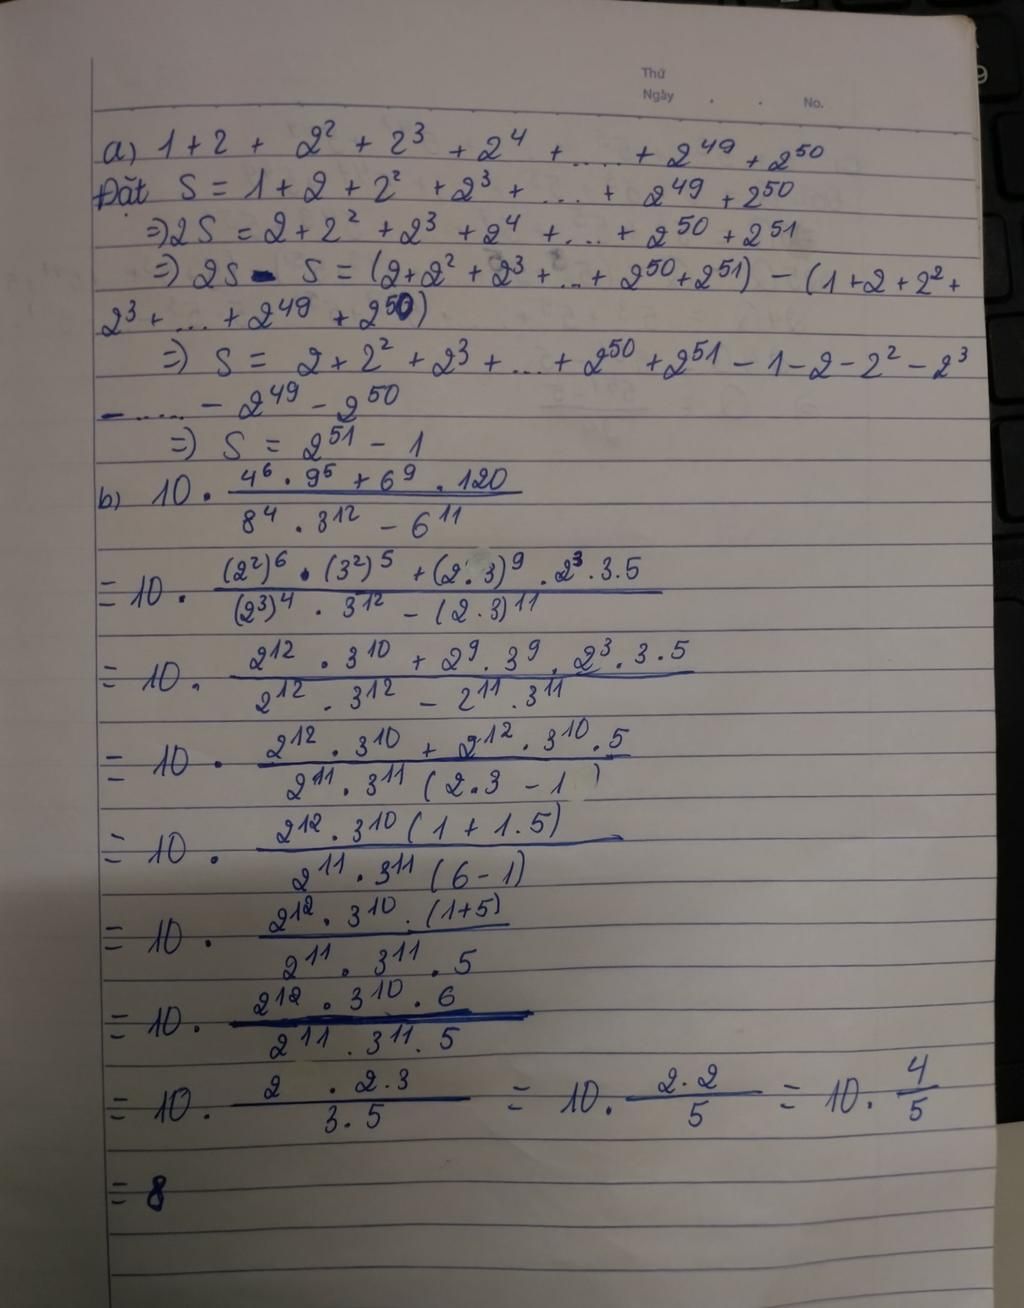 Thứ
Ngày . . No.
a) 1 + 2 + 2² + 2³ + 2⁴ + ..... + 2⁴⁹ + 2⁵⁰
Đặt S = 1 + 2 + 2² + 2³ + .... + 2⁴⁹ + 2⁵⁰
=> 2S = 2 + 2² + 2³ + 2⁴ + .... + 2⁵⁰ + 2⁵¹
=> 2S - S = (2 + 2² + 2³ + ... + 2⁵⁰ + 2⁵¹) - (1 + 2 + 2² +
2³ + .... + 2⁴⁹ + 2⁵⁰)
=> S = 2 + 2² + 2³ + ... + 2⁵⁰ + 2⁵¹ - 1 - 2 - 2² - 2³
- ...... - 2⁴⁹ - 2⁵⁰
=> S = 2⁵¹ - 1
b) 10 . (4⁶ . 9⁵ + 6⁹ . 120) / (8⁴ . 3¹² - 6¹¹)
= 10 . ((2²)⁶ . (3²)⁵ + (2 . 3)⁹ . 2³ . 3 . 5) / ((2³)⁴ . 3¹² - (2 . 3)¹¹)
= 10 . (2¹² . 3¹⁰ + 2⁹ . 3⁹ . 2³ . 3 . 5) / (2¹² . 3¹² - 2¹¹ . 3¹¹)
= 10 . (2¹² . 3¹⁰ + 2¹² . 3¹⁰ . 5) / (2¹¹ . 3¹¹ (2 . 3 - 1))
= 10 . (2¹² . 3¹⁰ (1 + 1 . 5)) / (2¹¹ . 3¹¹ (6 - 1))
= 10 . (2¹² . 3¹⁰ . (1 + 5)) / (2¹¹ . 3¹¹ . 5)
= 10 . (2¹² . 3¹⁰ . 6) / (2¹¹ . 3¹¹ . 5)
= 10 . (2 . 2 . 3) / (3 . 5) = 10 . (2 . 2) / 5 = 10 . 4/5
= 8